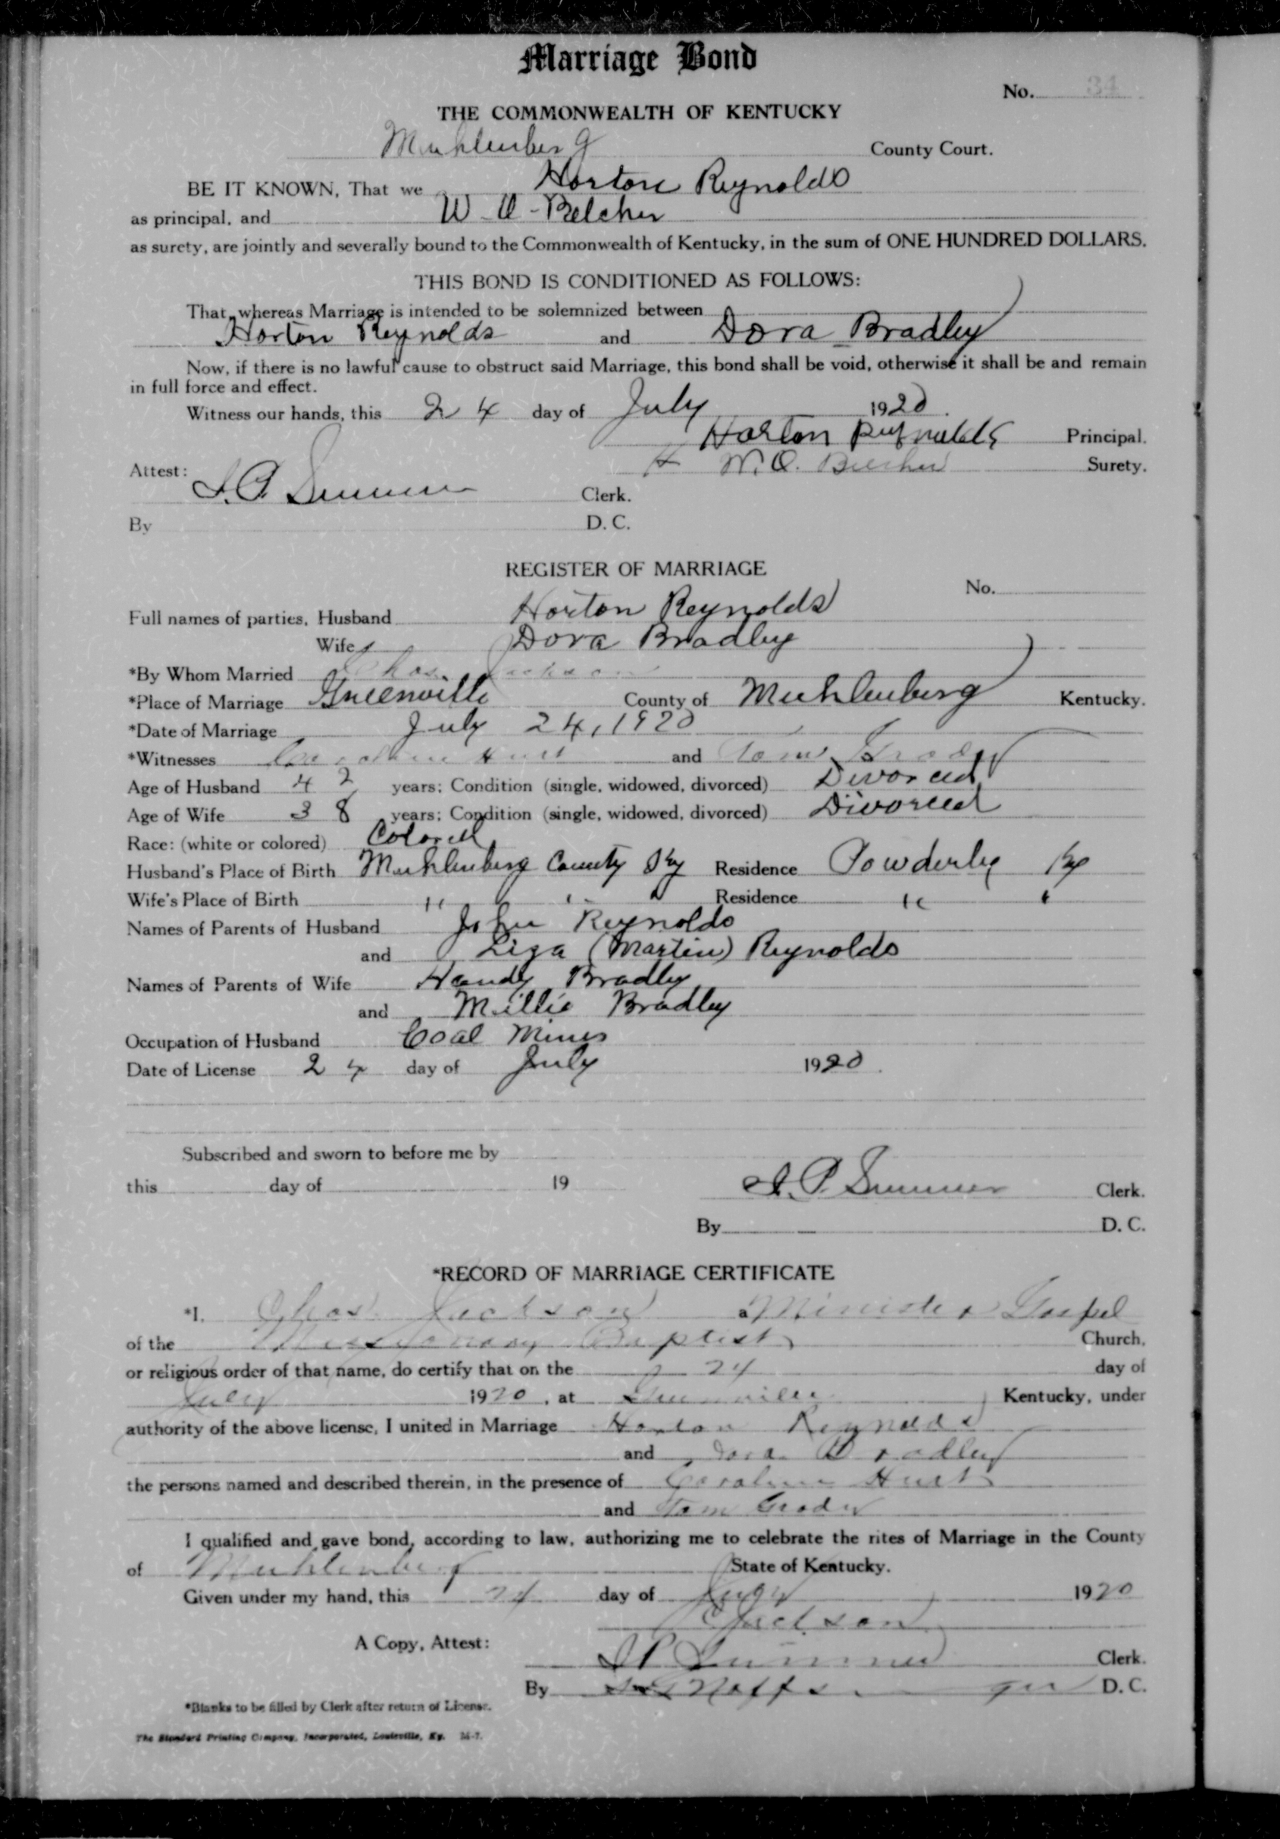 Marriage Bond
No. 34
THE COMMONWEALTH OF KENTUCKY
Muhlenberg County Court.
BE IT KNOWN, That we Horton Reynolds
as principal, and W. O. Belcher
as surety, are jointly and severally bound to the Commonwealth of Kentucky, in the sum of ONE HUNDRED DOLLARS.
THIS BOND IS CONDITIONED AS FOLLOWS:
That whereas Marriage is intended to be solemnized between
Horton Reynolds and Dora Bradley
Now, if there is no lawful cause to obstruct said Marriage, this bond shall be void, otherwise it shall be and remain
in full force and effect.
Witness our hands, this 24 day of July 1920.
Horton Reynolds Principal.
Attest: W. O. Belcher Surety.
Clerk.
By D. C.
REGISTER OF MARRIAGE
No.
Full names of parties, Husband Horton Reynolds
Wife Dora Bradley
*By Whom Married Chas. Jackson
*Place of Marriage Greenville County of Muhlenberg Kentucky.
*Date of Marriage July 24, 1920
*Witnesses and Tom
Age of Husband 42 years; Condition (single, widowed, divorced) Divorced
Age of Wife 38 years; Condition (single, widowed, divorced) Divorced
Race: (white or colored) Colored
Husband's Place of Birth Muhlenberg County Ky Residence Powderly Ky
Wife's Place of Birth " " Residence " "
Names of Parents of Husband John Reynolds
and Liza (Martin) Reynolds
Names of Parents of Wife Handy Bradley
and Millie Bradley
Occupation of Husband Coal Miner
Date of License 24 day of July 1920.
Subscribed and sworn to before me by
this day of 19 Clerk.
By D. C.
*RECORD OF MARRIAGE CERTIFICATE
*I, Chas. Jackson a Minister Gospel
of the Missionary Baptist Church,
or religious order of that name, do certify that on the 24 day of
July 1920, at Greenville Kentucky, under
authority of the above license, I united in Marriage Horton Reynolds
and Dora Bradley
the persons named and described therein, in the presence of Caroline
and Tom
I qualified and gave bond, according to law, authorizing me to celebrate the rites of Marriage in the County
of Muhlenberg State of Kentucky.
Given under my hand, this 24 day of July 1920
C Jackson
A Copy, Attest: Clerk.
By D. C.
*Blanks to be filled by Clerk after return of License.
The Standard Printing Company, Incorporated, Louisville, Ky.